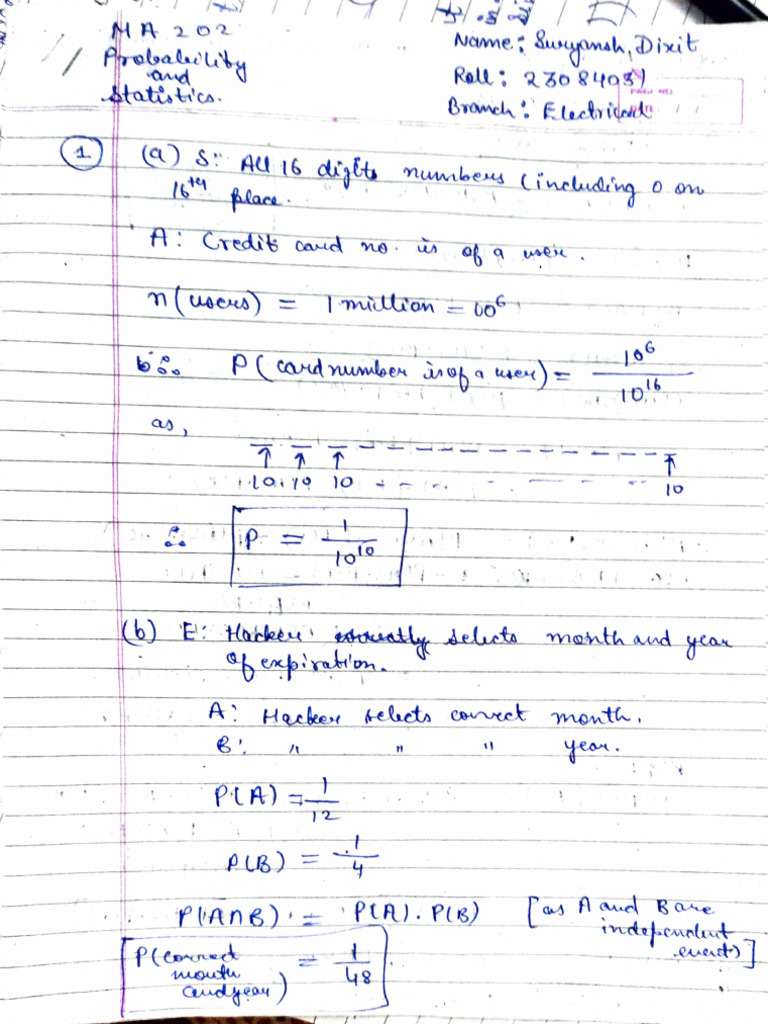 MA 202
Probability
and
Statistics.
Name: Suryansh Dixit
Roll: 23084031
Branch: Electrical
1 (a) S: All 16 digits numbers (including 0 on
16th place.
A: Credit card no. is of a user.
n(users) = 1 million = 10⁶
∴ P(card number is of a user) = 10⁶/10¹⁶
as,
_ _ _ _ _ _ _ _ _ _ _ _ _ _ _ _
↑ ↑ ↑ ↑
10 10 10 - - - - - - 10
∴ P = 1/10¹⁰
(b) E: Hacker correctly selects month and year
of expiration.
A: Hacker selects correct month.
B: " " " year.
P(A) = 1/12
P(B) = 1/4
P(A∩B) = P(A). P(B) [as A and B are
independent
event)]
P(correct
month
and year) = 1/48